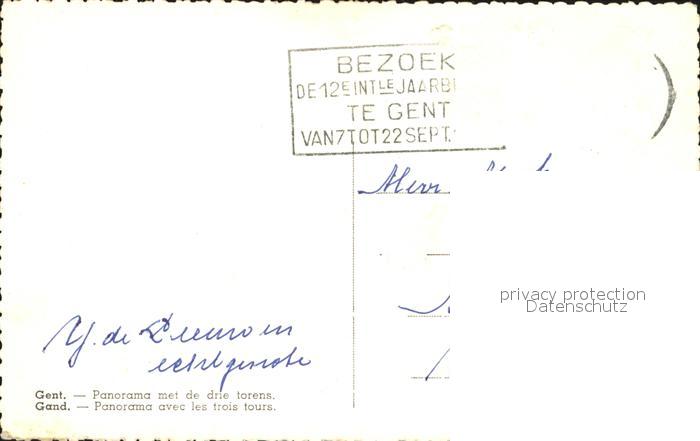 BEZOEK
DE 12E INTLE JAARB
TE GENT
VAN 7 TOT 22 SEPT.
Merr
privacy protection
Datenschutz
Y. de Leeuw en
echtgenote
Gent. — Panorama met de drie torens.
Gand. — Panorama avec les trois tours.